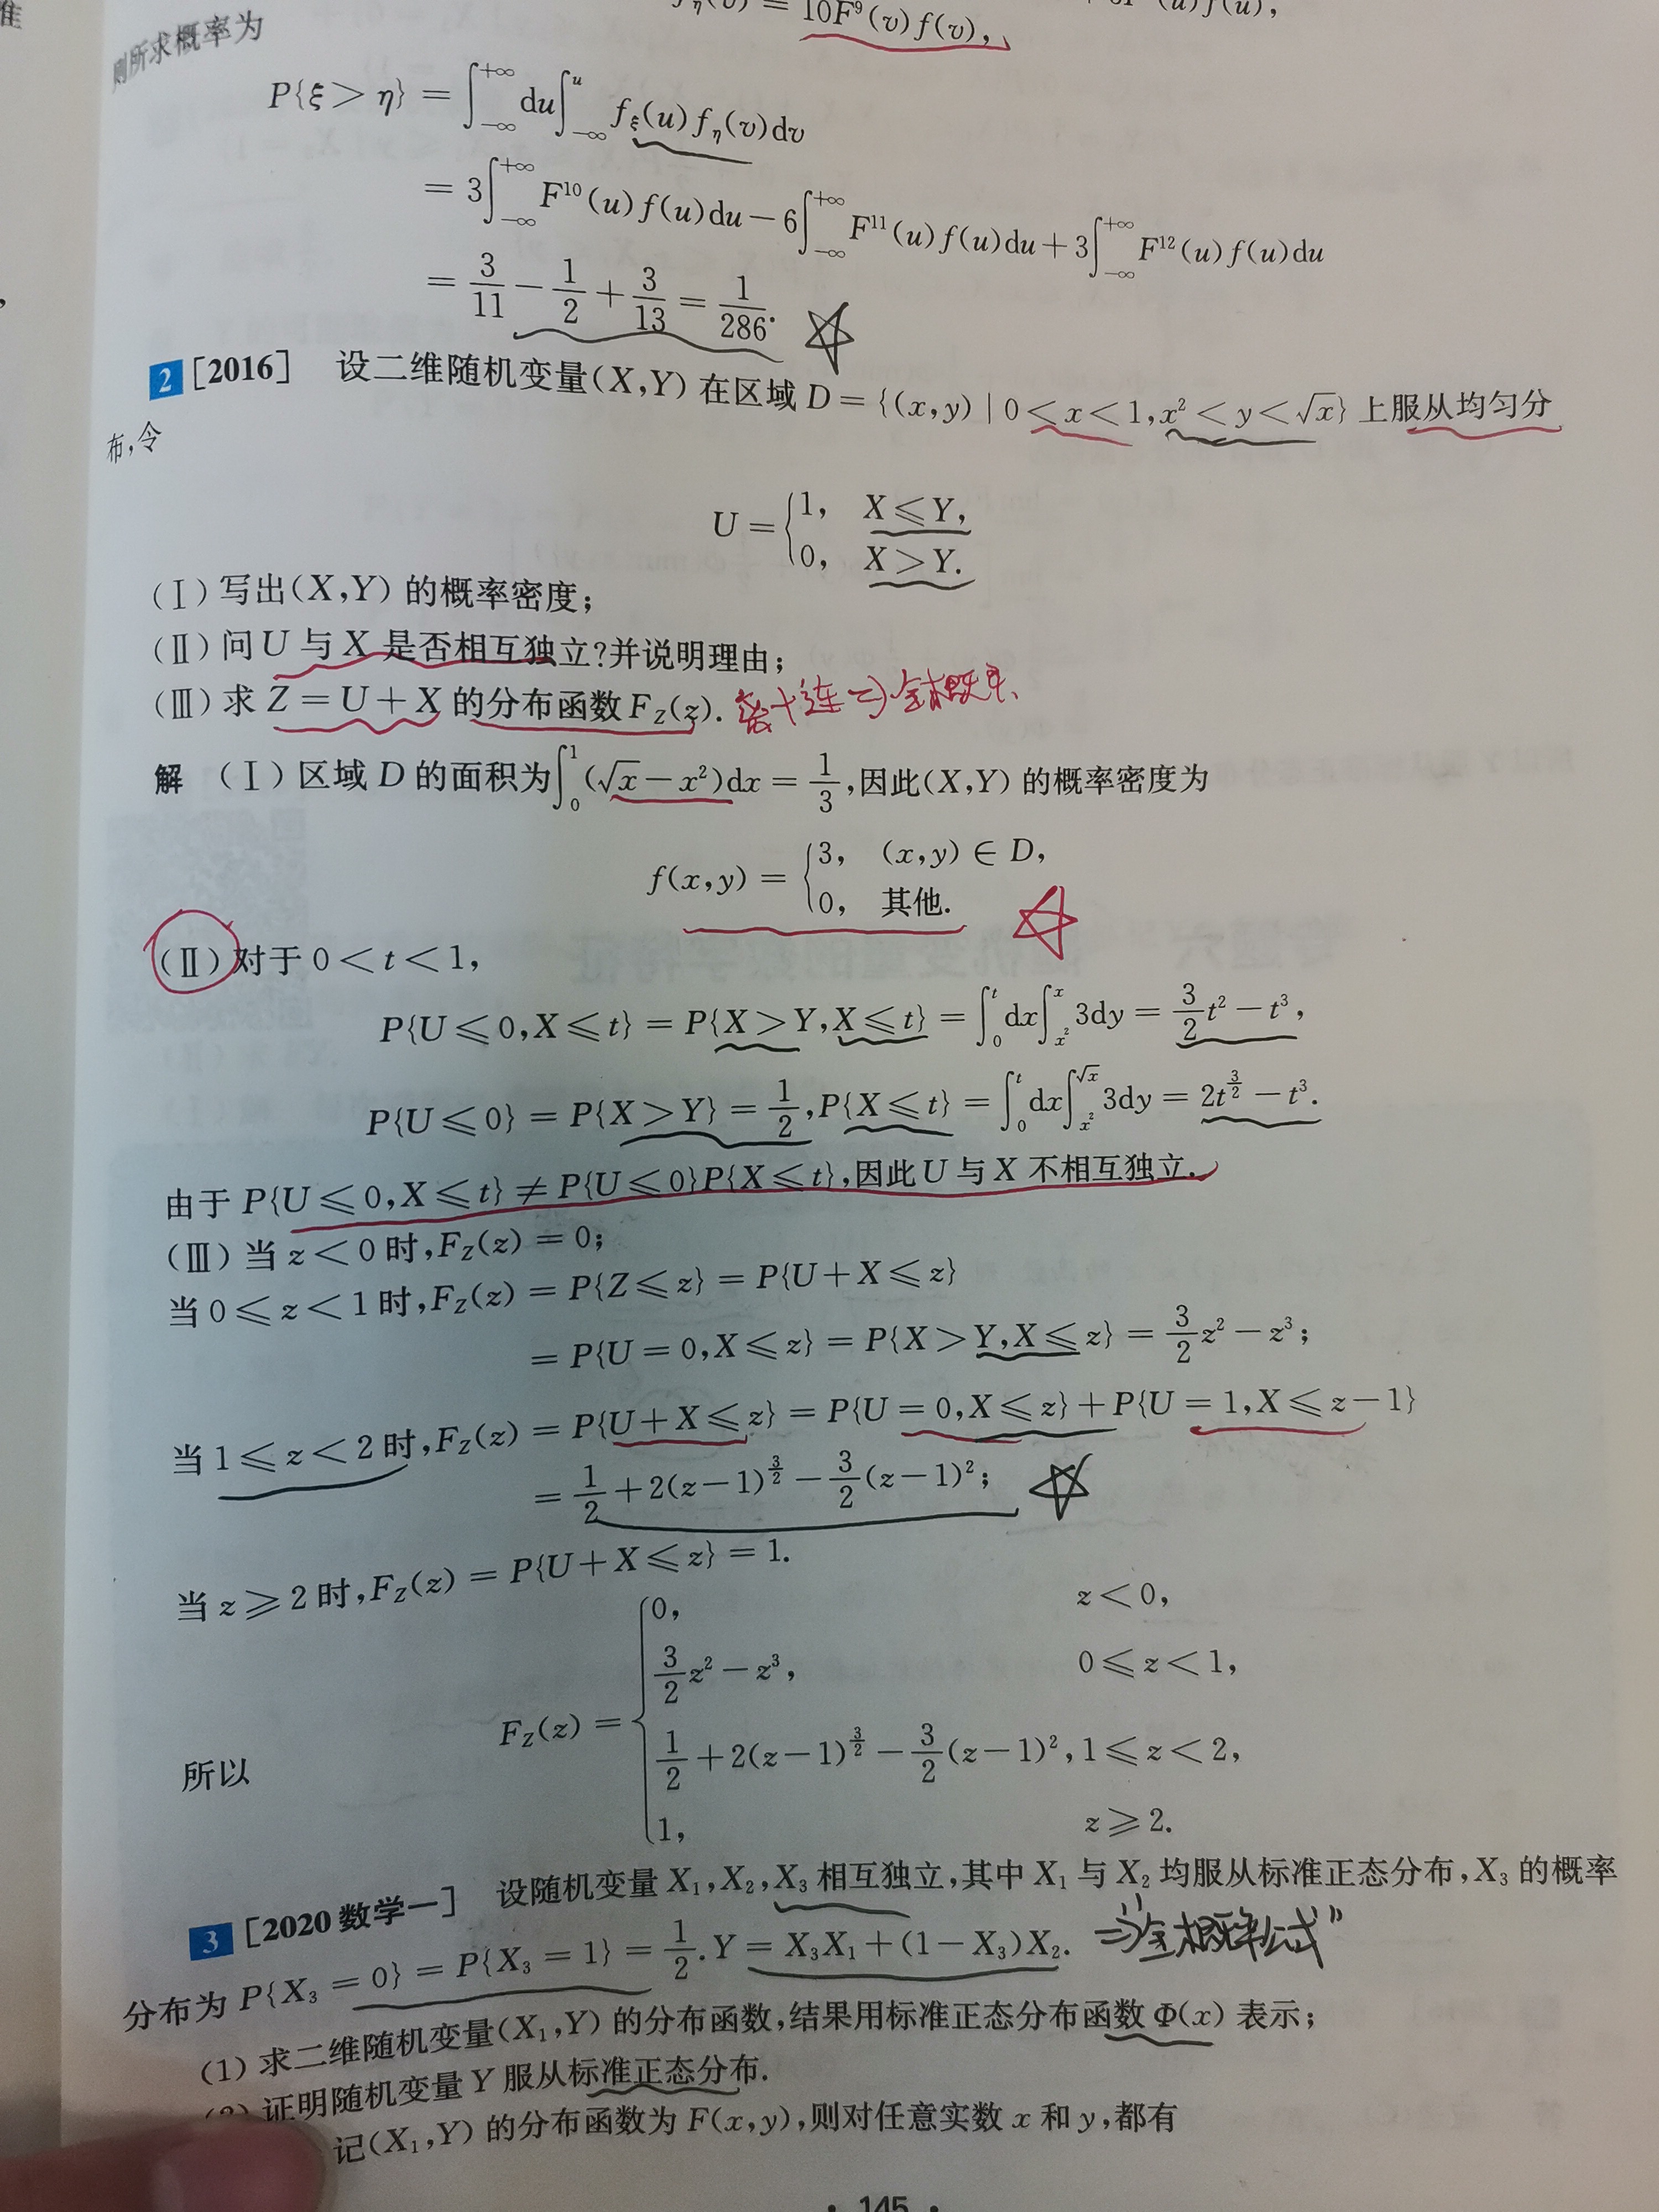 则所求概率为
10F⁹(v)f(v),
P{ξ>η} = ∫_{-∞}^{+∞} du ∫_{-∞}^{u} f_ξ(u)f_η(v)dv
= 3∫_{-∞}^{+∞} F¹⁰(u)f(u)du − 6∫_{-∞}^{+∞} F¹¹(u)f(u)du + 3∫_{-∞}^{+∞} F¹²(u)f(u)du
= 3/11 − 1/2 + 3/13 = 1/286.
2 [2016] 设二维随机变量(X,Y)在区域 D = {(x,y) | 0<x<1, x²<y<√x} 上服从均匀分
布,令
U = { 1, X⩽Y,
0, X>Y.
(Ⅰ) 写出(X,Y)的概率密度;
(Ⅱ) 问U与X是否相互独立?并说明理由;
(Ⅲ) 求 Z = U + X 的分布函数 F_Z(z). 离+连⇒全概率
解 (Ⅰ) 区域 D 的面积为∫_0^1 (√x − x²)dx = 1/3,因此(X,Y)的概率密度为
f(x,y) = { 3, (x,y) ∈ D,
0, 其他.
(Ⅱ) 对于 0<t<1,
P{U⩽0,X⩽t} = P{X>Y,X⩽t} = ∫_0^t dx ∫_{x²}^{x} 3dy = 3/2 t² − t³,
P{U⩽0} = P{X>Y} = 1/2, P{X⩽t} = ∫_0^t dx ∫_{x²}^{√x} 3dy = 2t^{3/2} − t³.
由于 P{U⩽0,X⩽t} ≠ P{U⩽0}P{X⩽t},因此U与X不相互独立.
(Ⅲ) 当 z<0 时,F_Z(z) = 0;
当 0⩽z<1 时,F_Z(z) = P{Z⩽z} = P{U+X⩽z}
= P{U=0,X⩽z} = P{X>Y,X⩽z} = 3/2 z² − z³;
当 1⩽z<2 时,F_Z(z) = P{U+X⩽z} = P{U=0,X⩽z} + P{U=1,X⩽z−1}
= 1/2 + 2(z−1)^{3/2} − 3/2 (z−1)²;
当 z⩾2 时,F_Z(z) = P{U+X⩽z} = 1.
所以 F_Z(z) = { 0, z<0,
3/2 z² − z³, 0⩽z<1,
1/2 + 2(z−1)^{3/2} − 3/2 (z−1)², 1⩽z<2,
1, z⩾2.
3 [2020 数学一] 设随机变量 X₁,X₂,X₃ 相互独立,其中 X₁ 与 X₂ 均服从标准正态分布,X₃ 的概率
分布为 P{X₃=0} = P{X₃=1} = 1/2. Y = X₃X₁+(1−X₃)X₂. ⇒"全概率公式"
(1) 求二维随机变量(X₁,Y)的分布函数,结果用标准正态分布函数 Φ(x) 表示;
证明随机变量 Y 服从标准正态分布.
记(X₁,Y)的分布函数为 F(x,y),则对任意实数 x 和 y,都有
• 145 •